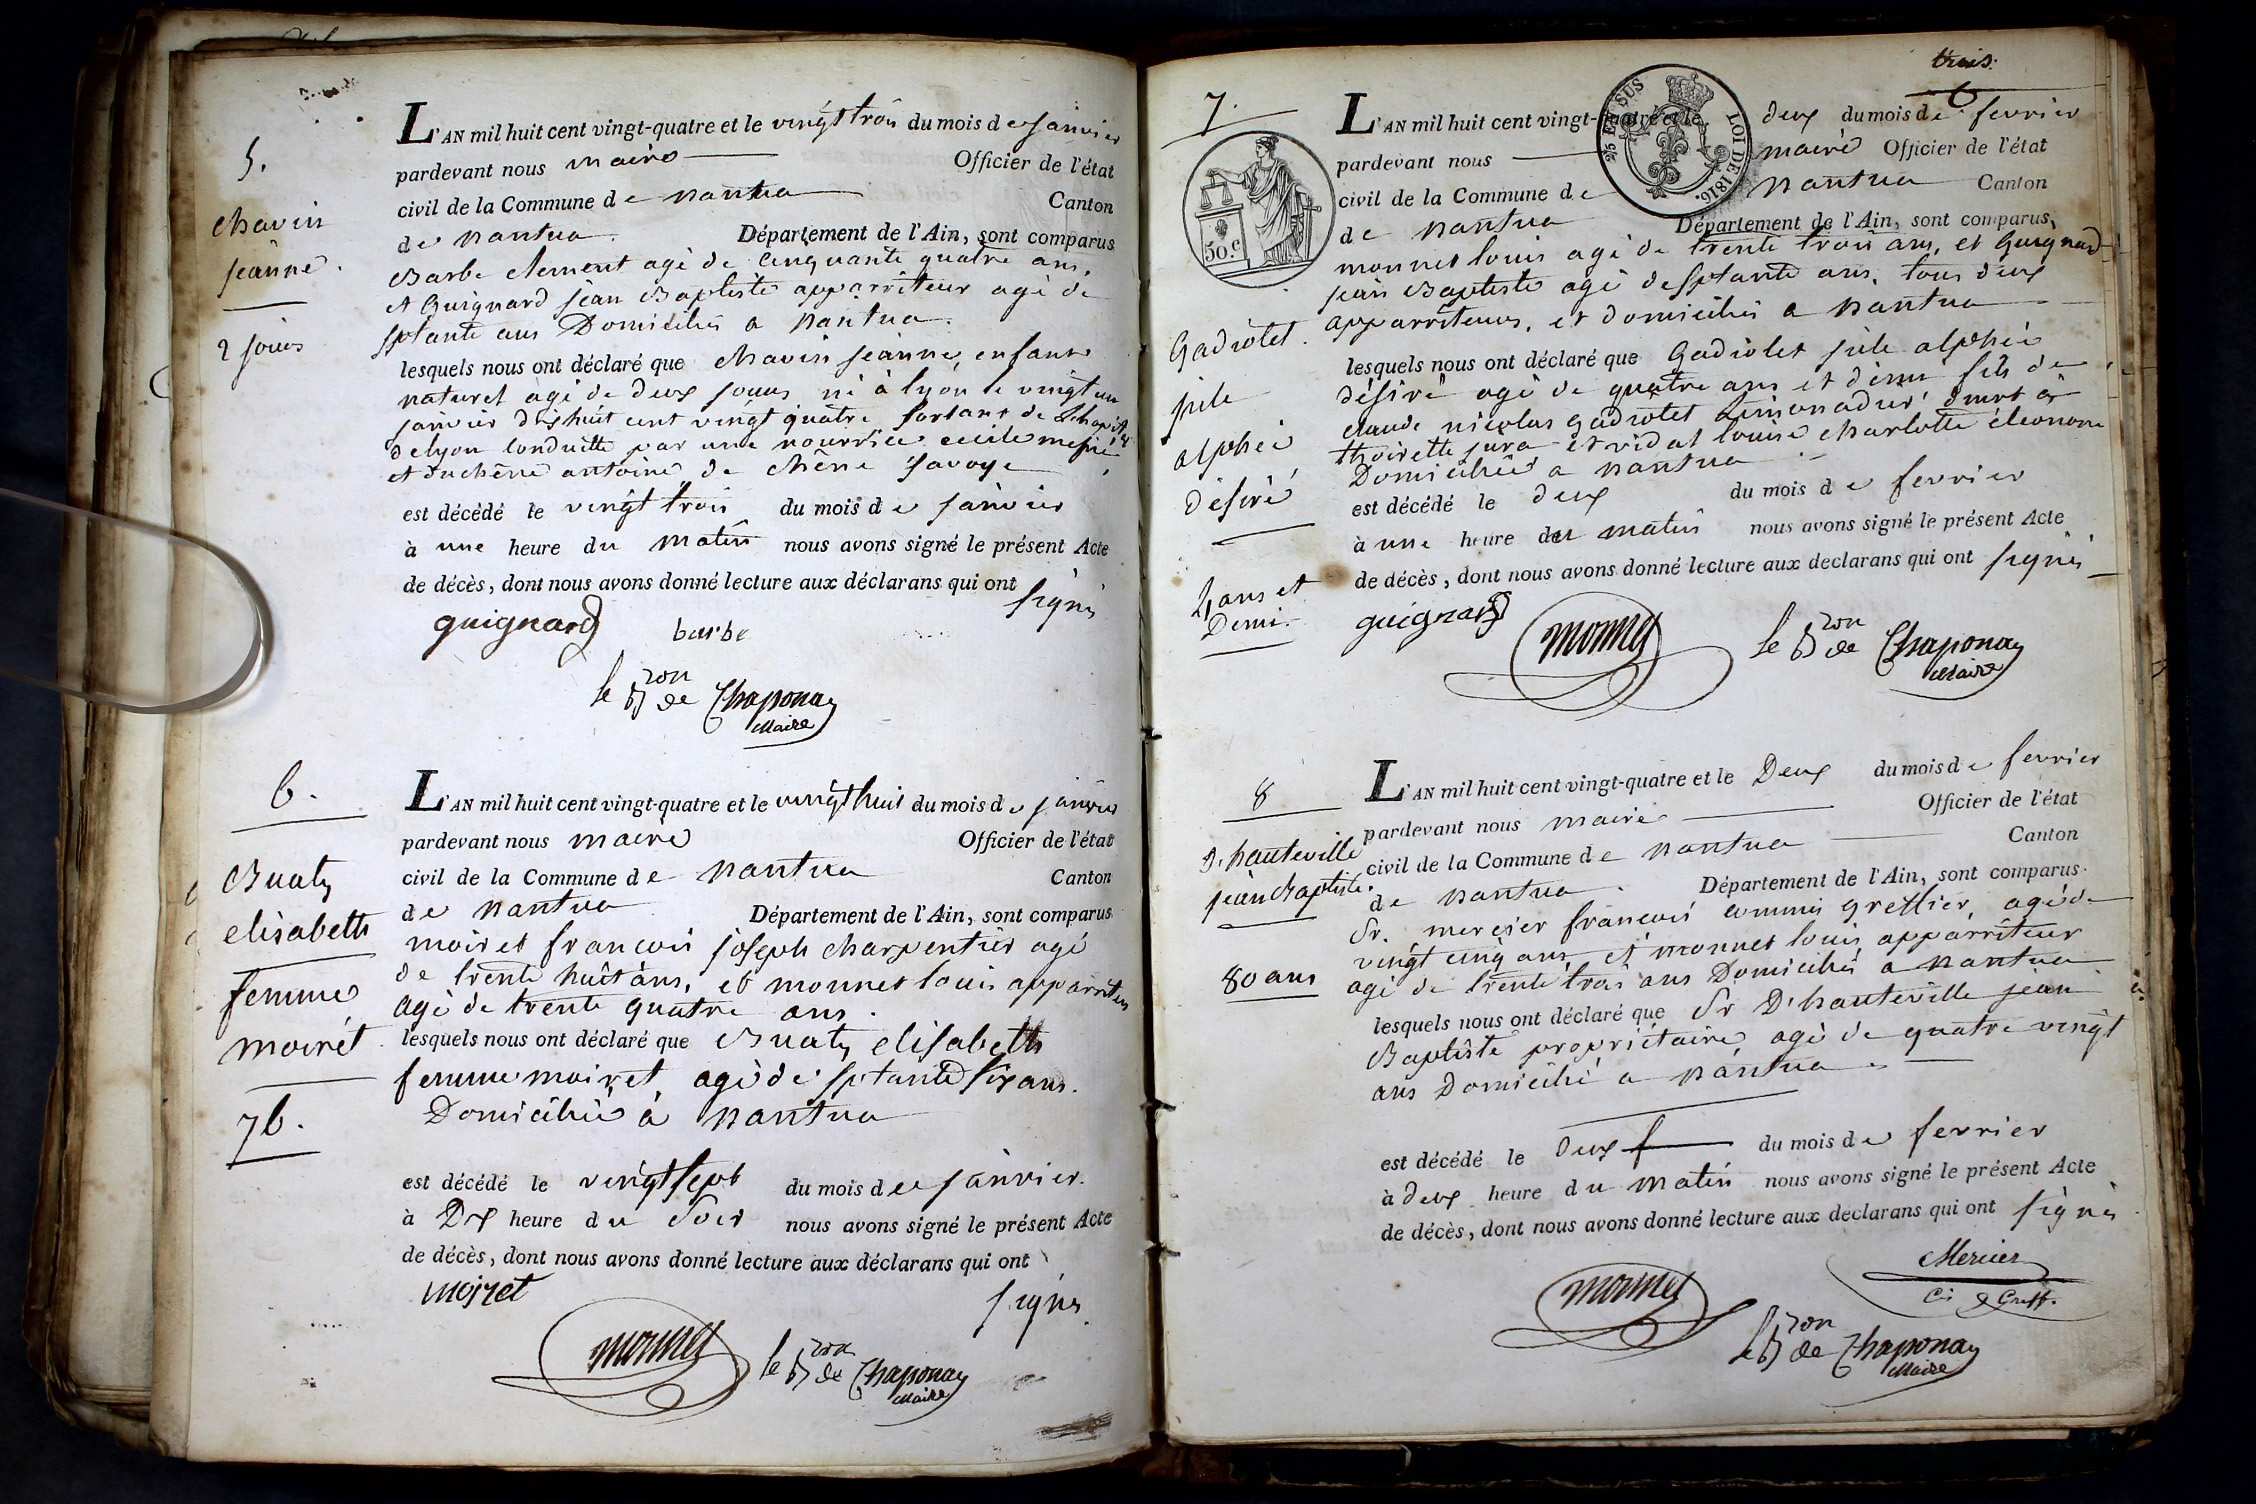 5.
chavin
jeanne.
2 jours
L'AN mil huit cent vingt-quatre et le vingt trois du mois de janvier
pardevant nous maire Officier de l'état
civil de la Commune de nantua Canton
de nantua. Département de l'Ain, sont comparus
Barbe clement agé de cinquante quatre ans,
et Guignard jean Baptiste apparriteur agé de
sptante ans Domiciliés a nantua.
lesquels nous ont déclaré que chavin jeanne, enfant
naturel agé de deux jours né à lyon le vingt un
janvier dix huit cent vingt quatre sortant de
de lyon conduitte par une nourrice cecile
et duchêne antoine de chêne savoye
est décédé le vingt trois du mois de janvier
à une heure du matin nous avons signé le présent Acte
de décès, dont nous avons donné lecture aux déclarans qui ont
signés
guignard barbe
le Bron de Chaponay
Maire
6.
Buaty
elisabeth
femme
moirét
76.
L'AN mil huit cent vingt-quatre et le vingt huit du mois de janvier
pardevant nous maire Officier de l'état
civil de la Commune de nantua Canton
de nantua Département de l'Ain, sont comparus
moiret francois joseph charpentier agé
de trente huit ans, et monnet louis apparriteur
agé de trente quatre ans.
lesquels nous ont déclaré que Buaty elisabeth
femme moiret agé de sptante six ans.
Domicilié à nantua
est décédé le vingt sept du mois de janvier.
à Dix heure du soir nous avons signé le présent Acte
de décès, dont nous avons donné lecture aux déclarans qui ont
moiret signés.
monnet le Bron de Chaponay
Maire
trois.
6
7.
50.c
25 EN SUS
LOI DE 1816.
Gadiolet.
jule
alphée
désiré
4 ans et
Demi.
L'AN mil huit cent vingt-quatre et le deux du mois de fevrier
pardevant nous maire Officier de l'état
civil de la Commune de nantua Canton
de nantua Département de l'Ain, sont comparus,
monnet louis agé de trente trois ans, et Guignard
jean Baptiste agé de sptante ans, tous deux
apparriteurs, et domiciliés a nantua
lesquels nous ont déclaré que Gadiolet jule alphée
désiré agé de quatre ans et demi fils de
claude nicolas gadiolet limonadier
thoirette jura et vidat louise charlotte éleonore
Domiciliés a nantua
est décédé le deux du mois de fevrier
à une heure du matin nous avons signé le présent Acte
de décès, dont nous avons donné lecture aux declarans qui ont signés
guignard monnet le Bron de Chaponay
Maire
8
D'hauteville
jean Baptiste.
80 ans
L'AN mil huit cent vingt-quatre et le Deux du mois de fevrier
pardevant nous maire Officier de l'état
civil de la Commune de nantua Canton
de nantua. Département de l'Ain, sont comparus
Sr. mercier francois commis greffier, agé de
vingt cinq ans et monnet louis apparriteur
agé de trente trois ans Domiciliés a nantua
lesquels nous ont déclaré que Sr D'hauteville jean
Baptiste propriétaire, agé de quatre vingt
ans Domicilié a nantua
est décédé le deux du mois de fevrier
à deux heure du matin nous avons signé le présent Acte
de décès, dont nous avons donné lecture aux declarans qui ont signés
Mercier
Cis Greff.
monnet
le Bron de Chaponay
Maire